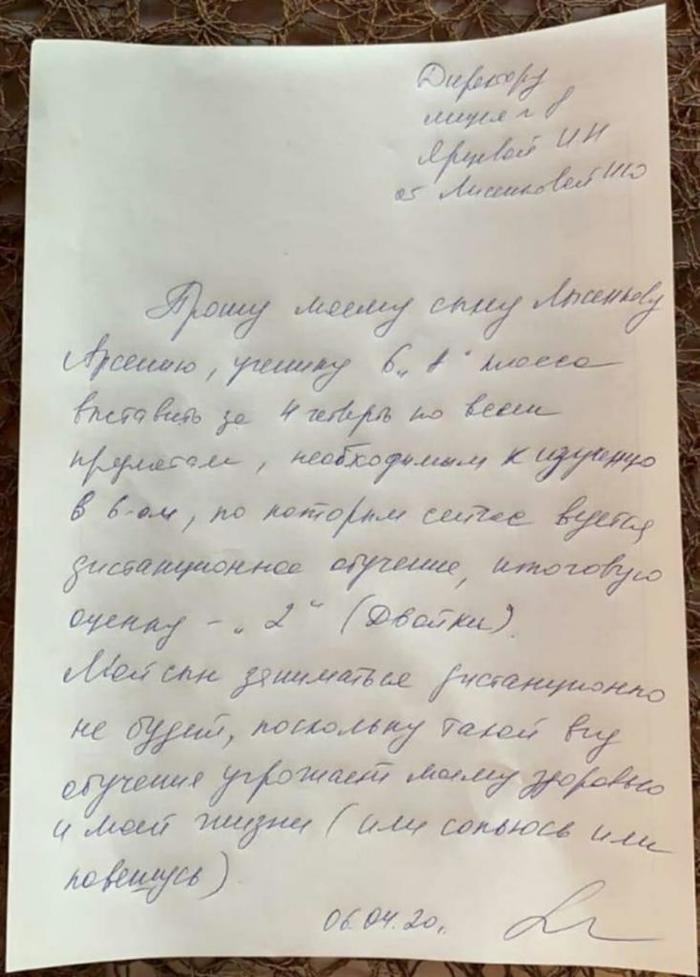 Директору
лицея № 8
Яруевой ИН
от Лысенковой ИЮ
Прошу моему сыну Лысенкову
Арсению, ученику 6 „А“ класса
выставить за 4 четверть по всем
предметам, необходимым к изучению
в 6-ом, по которым сейчас ведется
дистанционное обучение, итоговую
оценку - „2“ (Двойки).
Мой сын заниматься дистанционно
не будет, поскольку такой вид
обучения угрожает моему здоровью
и моей жизни (или сопьюсь или
повешусь)
06.04.20г.